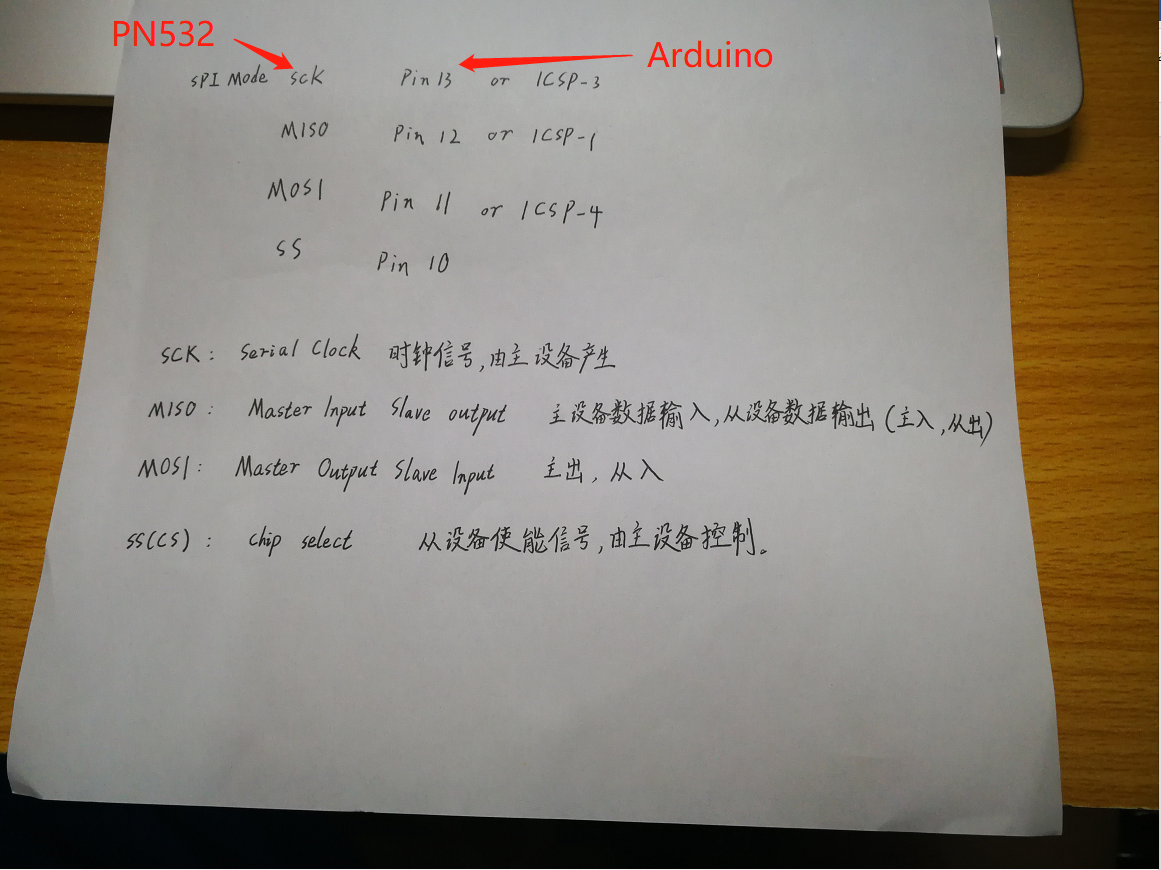 PN532
Arduino
SPI Mode SCK Pin 13 or ICSP-3
MISO Pin 12 or ICSP-1
MOSI Pin 11 or ICSP-4
SS Pin 10
SCK: Serial Clock 时钟信号,由主设备产生
MISO: Master Input Slave output 主设备数据输入,从设备数据输出(主入,从出)
MOSI: Master Output Slave Input 主出,从入
SS(CS): chip select 从设备使能信号,由主设备控制。